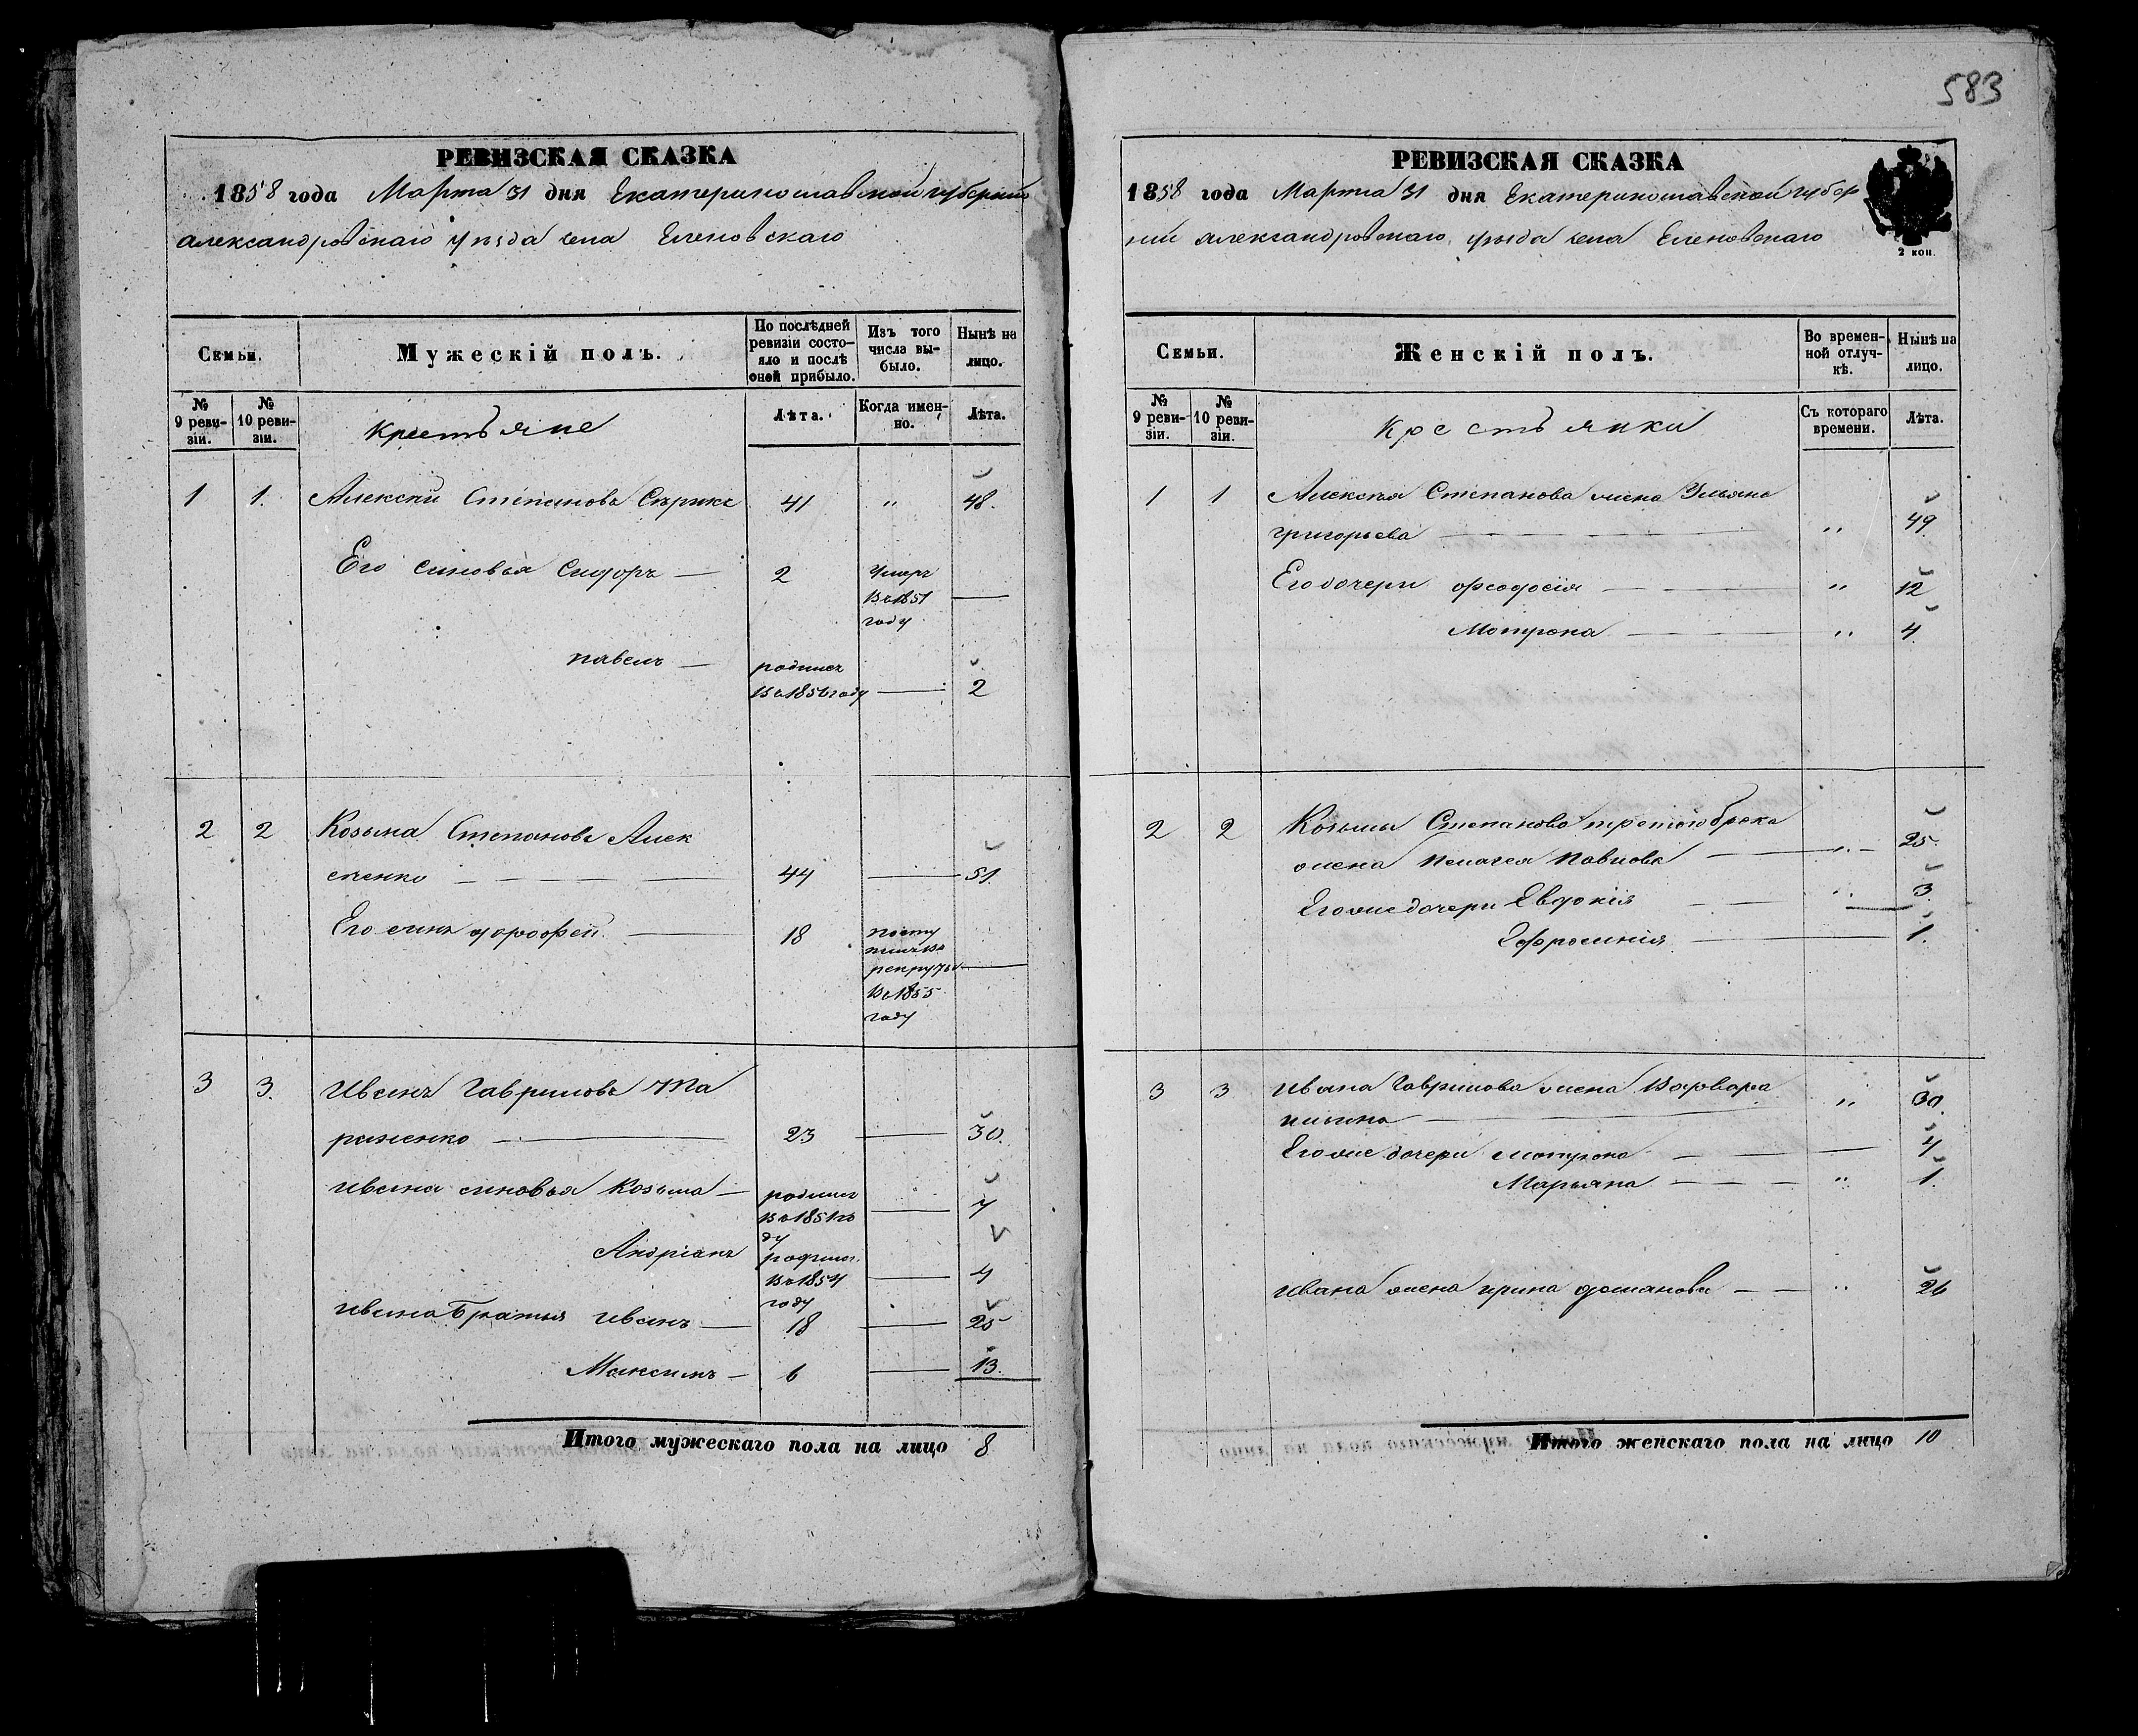 583
РЕВИЗСКАЯ СКАЗКА
1858 года Марта 31 дня Екатеринославской губернии
александровскаго уезда села Еленовскаго
Семьи.
Мужескій полъ.
По послѣдней ревизіи состо-
яло и послѣ
оной прибыло.
Изъ того
числа вы-
было.
Нынѣ на
лицо.
№
9 реви-
зіи.
№
10 реви-
зіи.
Крестьяне
Лѣта.
Когда имен-
но.
Лѣта.
1 1. Алексей Степановъ Серикъ 41 " 48.
Его синовья Сидоръ — 2 Умеръ
въ 1851 —
году
павелъ — родился
въ 1856 году — 2
2 2 Козьма Степановъ Алек
сеенко — 44 — 51.
Его синъ дорофей. — 18 посту
пилъ въ
рекруты —
въ 1855
году
3 3. Иванъ Гавриловъ Та
раненко — 23 — 30.
Ивана синовья Козьма — родился
въ 1851 го — 7
ду
Андріанъ родился
въ 1854 — 4
году
Ивана Братья Иванъ — 18 — 25
Максимъ — 6 — 13.
Итого мужескаго пола на лицо 8
РЕВИЗСКАЯ СКАЗКА
1858 года Марта 31 дня Екатеринославской губер
ніи александровскаго уезда села Еленовскаго
2 коп.
Семьи.
Женскій полъ.
Во времен-
ной отлуч-
кѣ.
Нынѣ на
лицо.
№
9 реви-
зіи.
№
10 реви-
зіи.
Крестьянки
Съ котораго
времени.
Лѣта.
1 1 Алексея Степанова жена Ульяна
григорьева — " 49.
Его дочери феодосія — " 12
Мотрона — " 4.
2 2 Козьмы Степанова третого брака
жена Пелагея Павлова — " — 25.
Его же дочери Евдокія — " 3.
Эфросинія — 1.
3 3 Ивана Гаврилова жена Варвара
ильина — " 30.
Его же дочери мотрона — 4
Марьяна — " 1.
Ивана жена ирина романова — " 26
Итого женскаго пола на лицо 10